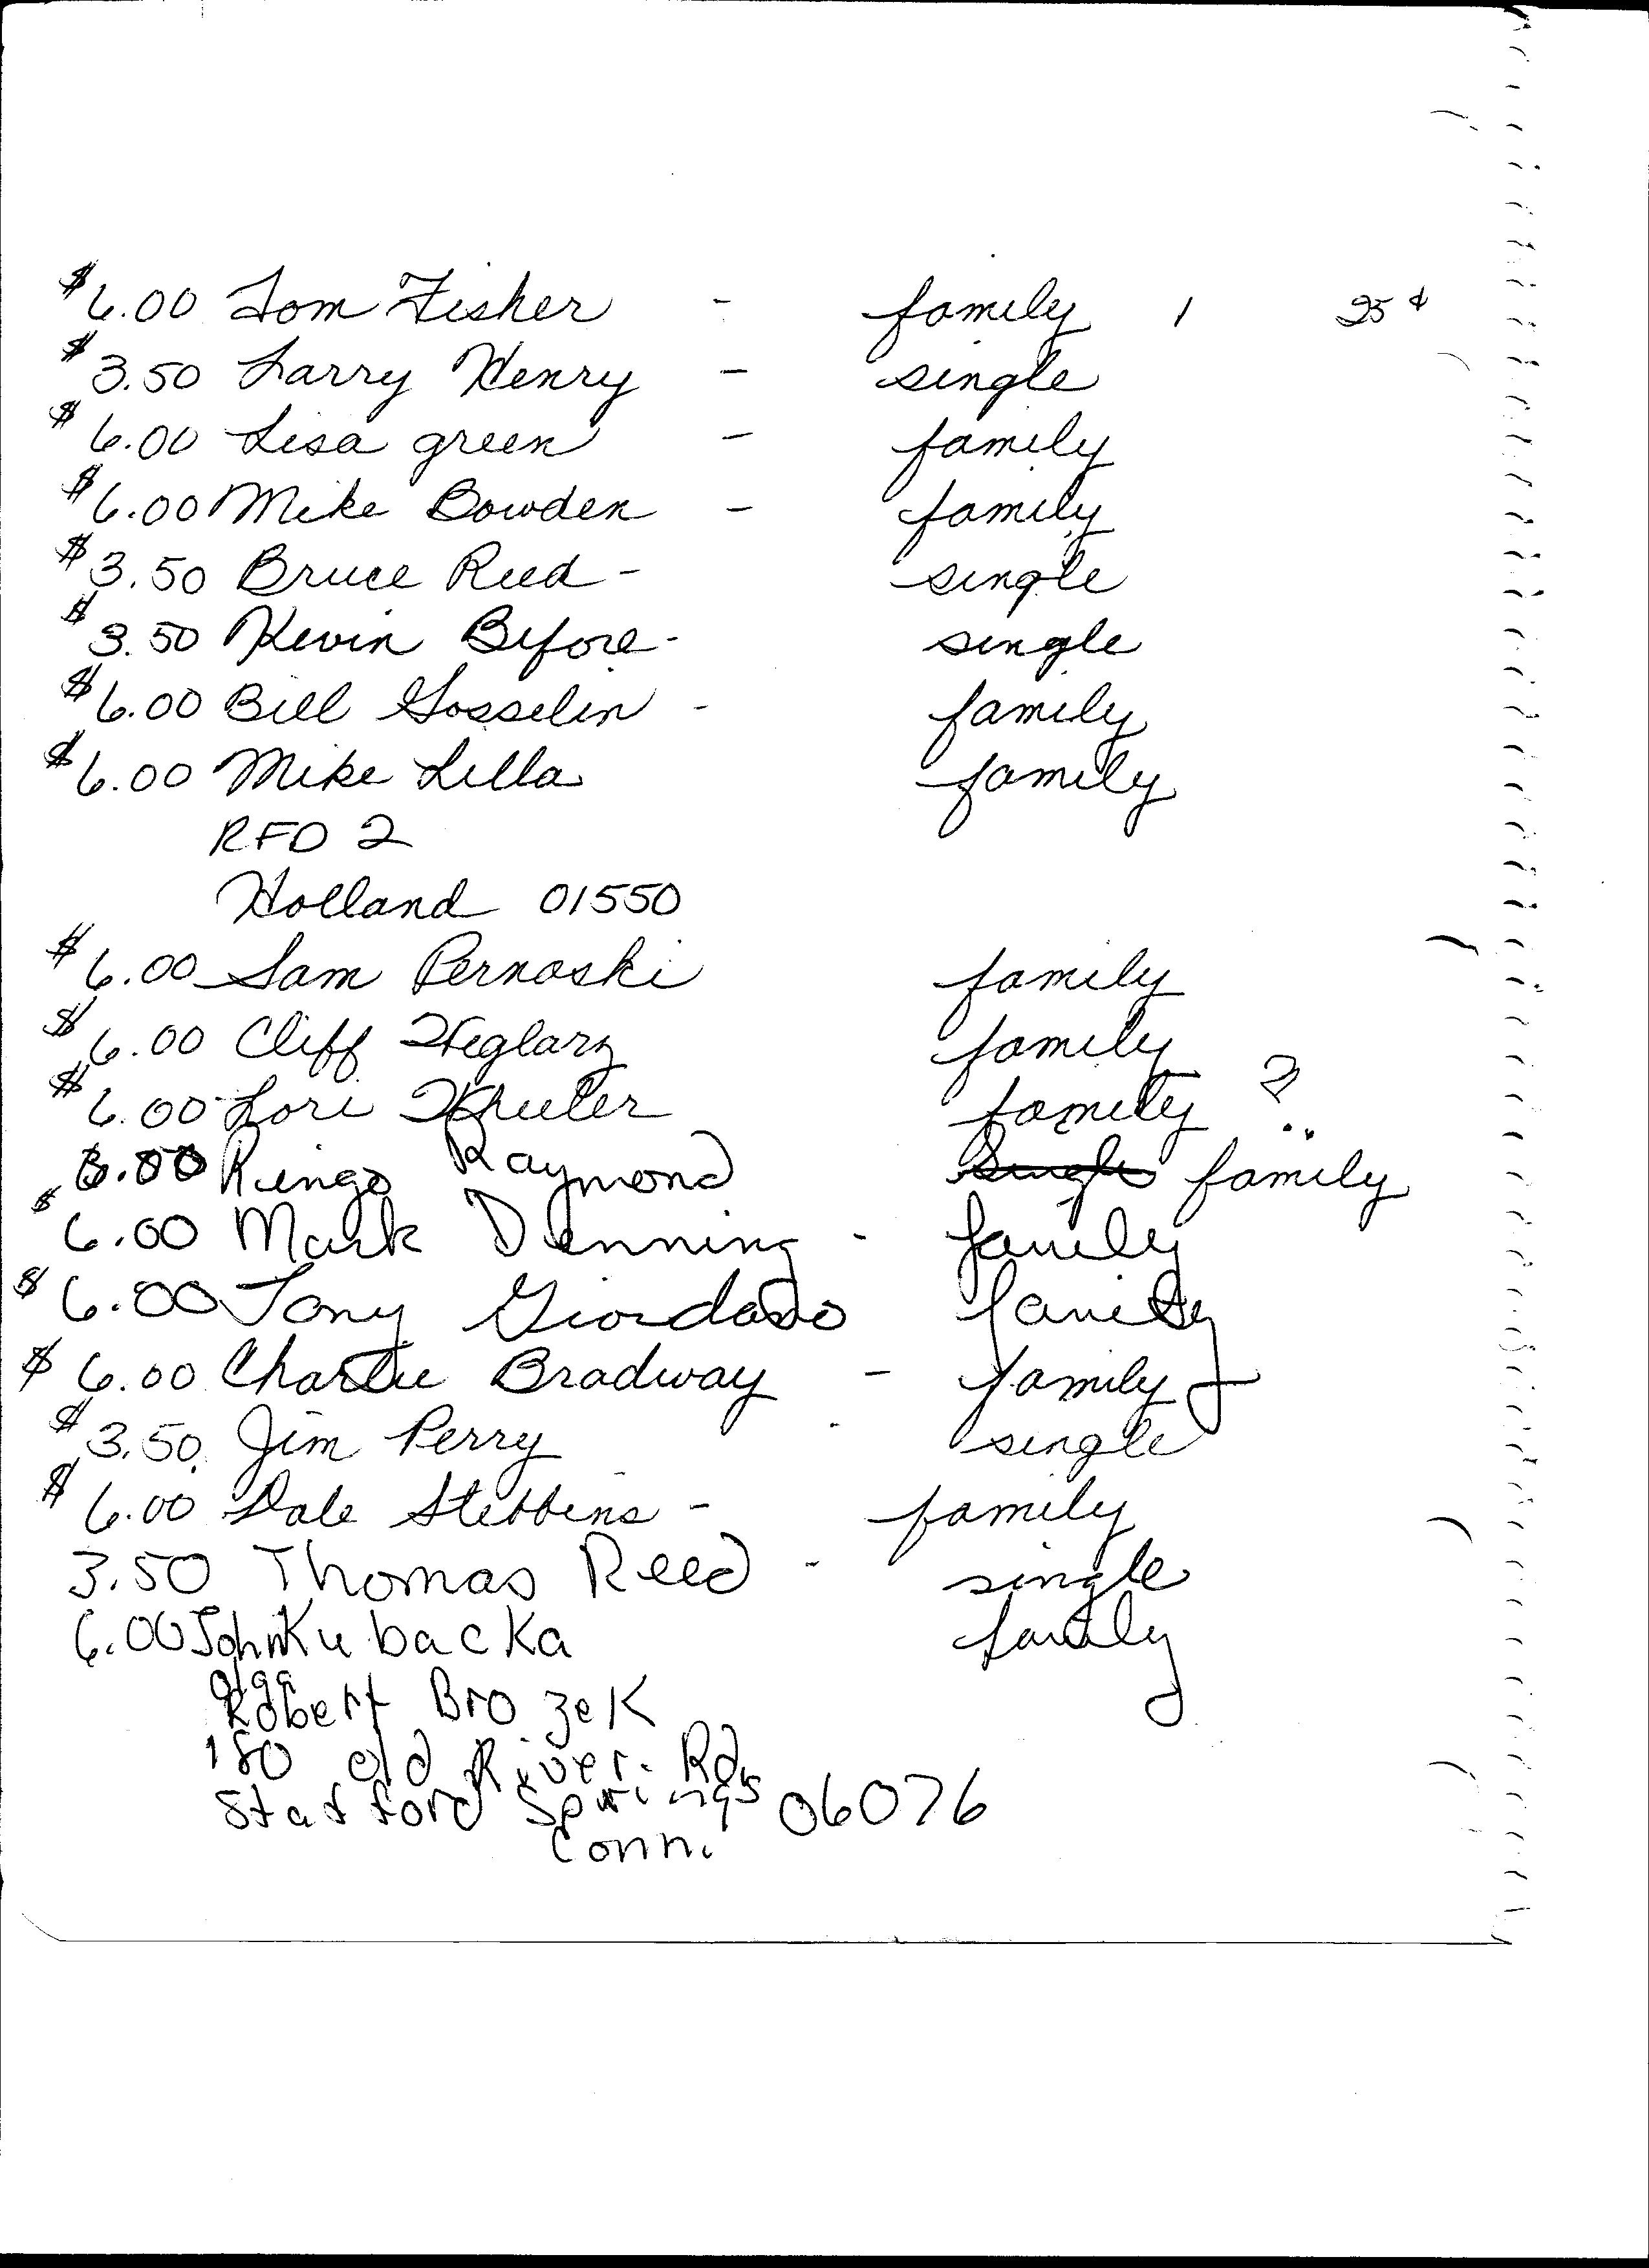 $6.00 Tom Fisher - family 1 25¢
$3.50 Larry Henry - single
$6.00 Lisa green - family
$6.00 Mike Bowden - family
$3.50 Bruce Reed - single
$3.50 Kevin Before - single
$6.00 Bill Gosselin - family
$6.00 Mike Lilla family
RFD 2
Holland 01550
$6.00 Sam Pernaski family
$6.00 Cliff family
$6.00 Lori family ?
6.00 Ringo Raymond Single family
$6.00 Mark Denning - family
$6.00 Tony Giordano family
$6.00 Charlie Bradway - family
$3.50 Jim Perry - single
$6.00 Dale Stebbins - family
3.50 Thomas Reed - single
6.00 John Kubacka family
Olga
Robert Brozek
180 old River Rd.
Stafford Springs 06076
Conn.